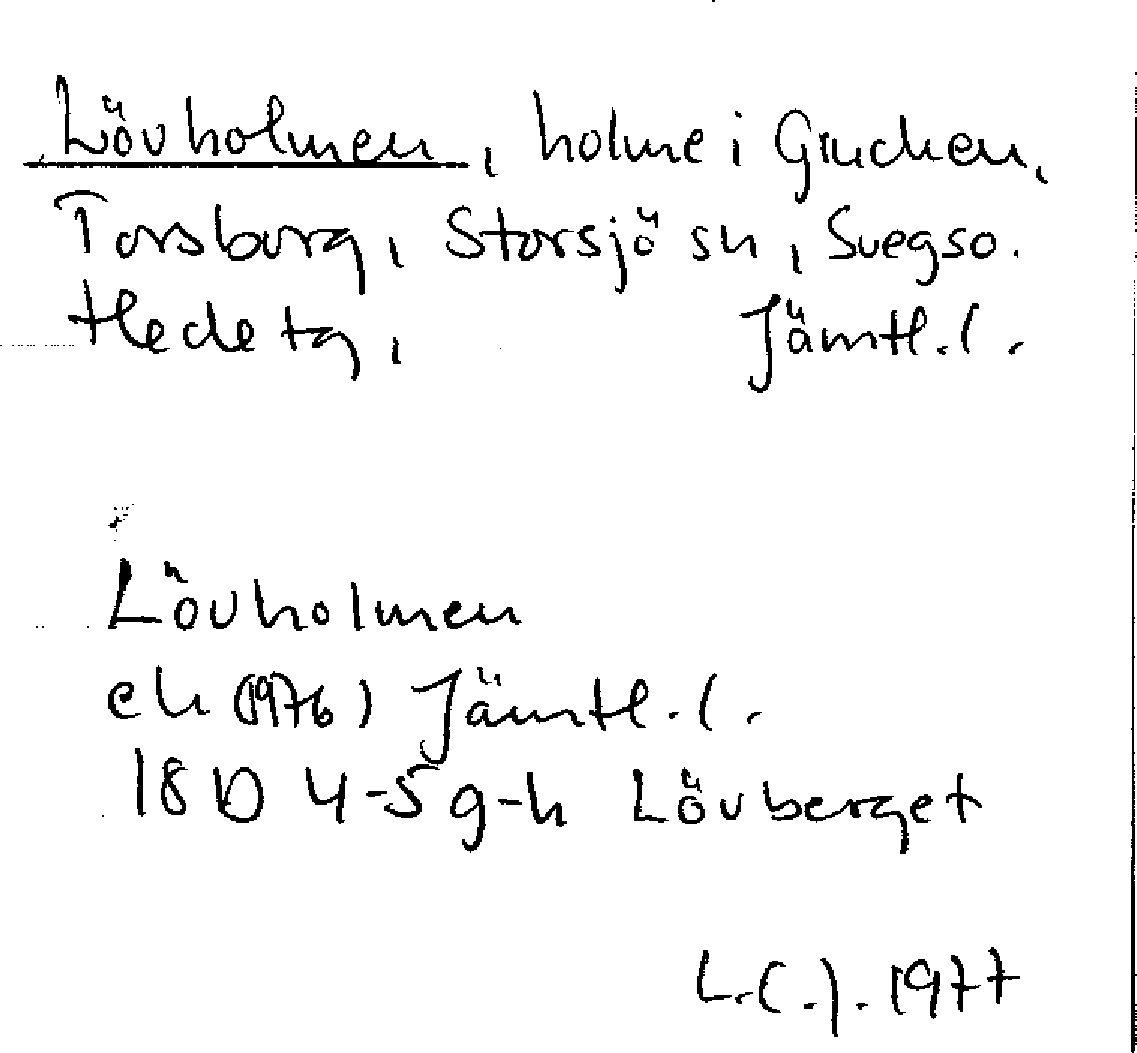 Lövholmen, holme i Grucken,
Torsborg, Storsjö sn, Svegso.
Hede tg, Jämtl. l.
Lövholmen
ek (1976) Jämtl. l.
18 D 4-5 g-h Lövberget
L.C.J. 1977